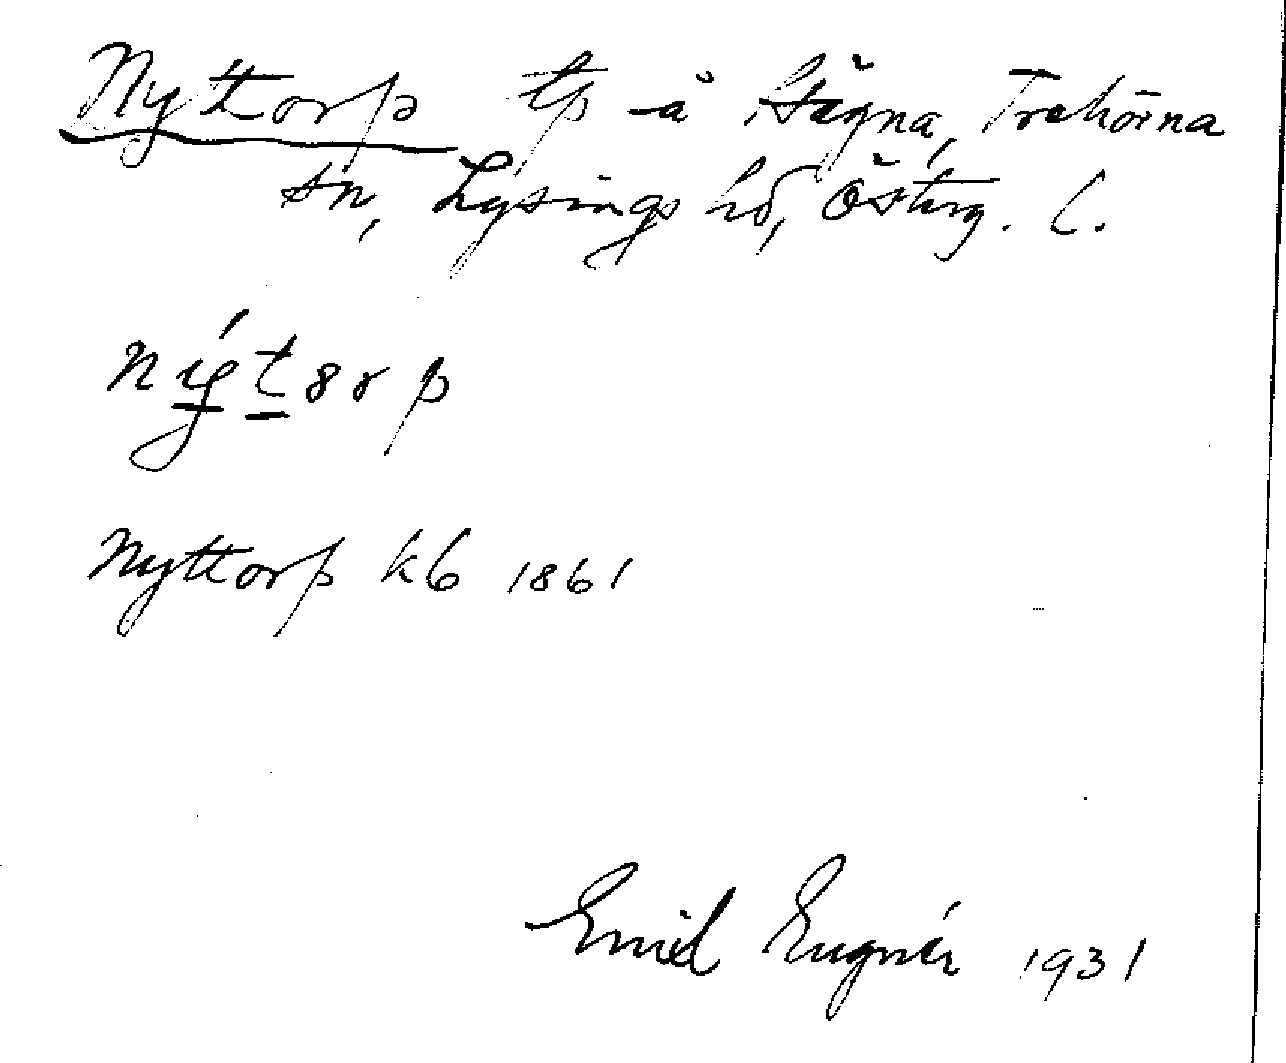 Nyttorp tp å Stägna, Trehörna
sn, Lysings hd, Österg. l.
Nyttorp kb 1861
Emil Eugnér 1931